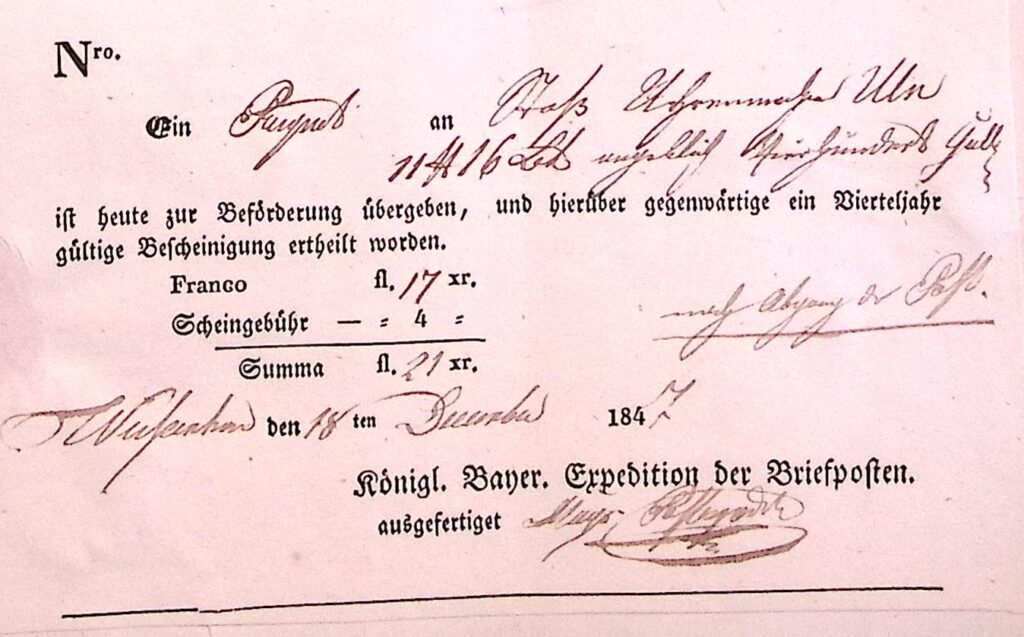 Nro.
Ein Paquet an Stoß Uhrenmacher Ulm
11 ℔ 16 Lth angeblich Vierhundert Guld
ist heute zur Beförderung übergeben, und hierüber gegenwärtige ein Vierteljahr
gültige Bescheinigung ertheilt worden.
Franco fl. 17 xr.
nach Abgang der Post.
Scheingebühr — = 4 =
Summa fl. 21 xr.
den 18ten December 1847
Königl. Bayer. Expedition der Briefposten.
ausgefertiget Mayr